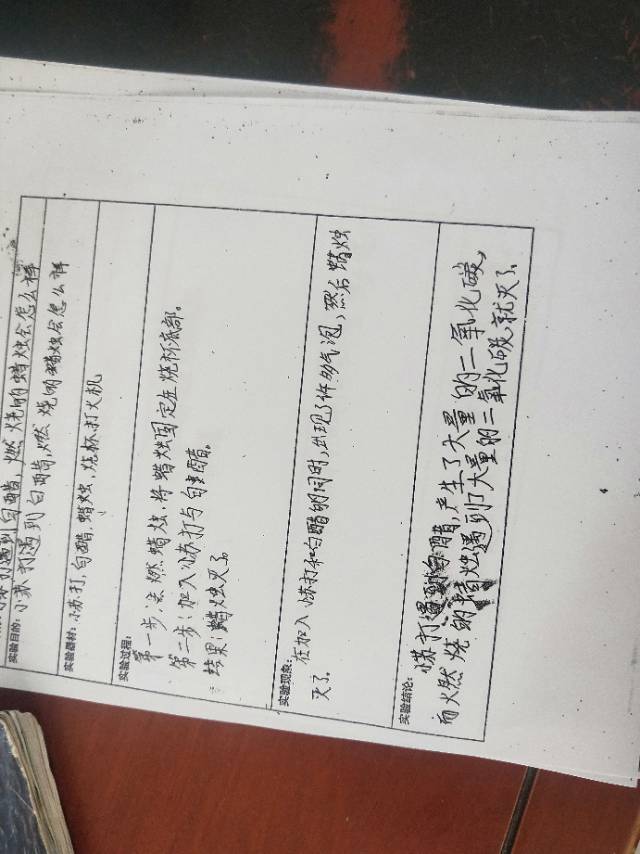 小苏打遇到白醋,燃烧的蜡烛会怎么样
实验目的:小苏打遇到白醋,燃烧的蜡烛会怎么样
实验器材:小苏打,白醋,蜡烛,烧杯,打火机
实验过程:
第一步:点燃蜡烛,将蜡烛固定在烧杯底部。
第二步:加入小苏打与白醋。
结果:蜡烛灭了
实验现象:
在加入小苏打和白醋的同时,出现了许多气泡,然后蜡烛
灭了
实验结论:
小苏打遇到白醋,产生了大量的二氧化碳,
而火燃烧的蜡烛遇到了大量的二氧化碳就灭了。